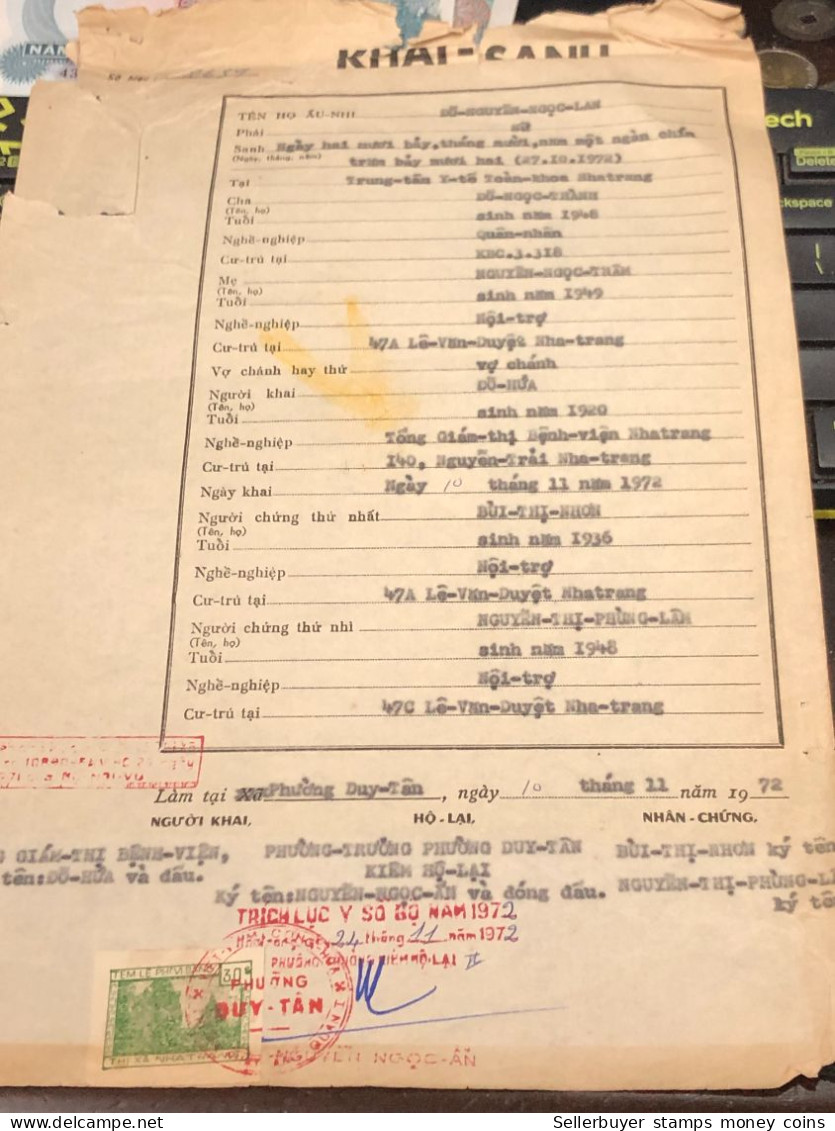 KHAI-SANH
TÊN HỌ ẤU-NHI ĐỖ-NGUYỄN-NGỌC-LAN
Phái nữ
Sanh Ngày hai mươi bảy, tháng mười, năm một ngàn chín
(Ngày, tháng, năm) trăm bảy mươi hai (27.10.1972)
Tại Trung-tâm Y-tế Toàn-khoa Nhatrang
Cha ĐỖ-NGỌC-THÀNH
(Tên, họ)
Tuổi sinh năm 1948
Nghề-nghiệp Quân-nhân
Cư-trú tại KBC.3.318
Mẹ NGUYỄN-NGỌC-TRÂM
(Tên, họ)
Tuổi sinh năm 1949
Nghề-nghiệp Nội-trợ
Cư-trú tại 47A Lê-Văn-Duyệt Nha-trang
Vợ chánh hay thứ vợ chánh
Người khai ĐỖ-HỨA
(Tên, họ)
Tuổi sinh năm 1920
Nghề-nghiệp Tổng Giám-thị Bệnh-viện Nhatrang
Cư-trú tại 140, Nguyễn-Trải Nha-trang
Ngày khai Ngày 10 tháng 11 năm 1972
Người chứng thứ nhất BÙI-THỊ-NHƠN
(Tên, họ)
Tuổi sinh năm 1936
Nghề-nghiệp Nội-trợ
Cư-trú tại 47A Lê-Văn-Duyệt Nhatrang
Người chứng thứ nhì NGUYỄN-THỊ-PHÙNG-LÂM
(Tên, họ)
Tuổi sinh năm 1948
Nghề-nghiệp Nội-trợ
Cư-trú tại 47C Lê-Văn-Duyệt Nha-trang
Làm tại Xã Phường Duy-Tân, ngày 10 tháng 11 năm 1972
NGƯỜI KHAI, HỘ-LẠI, NHÂN-CHỨNG,
GIÁM-THỊ BỆNH-VIỆN, PHƯỜNG-TRƯỞNG PHƯỜNG DUY-TÂN BÙI-THỊ-NHƠN ký tên
tên:ĐỖ-HỨA và dấu. KIÊM HỘ-LẠI NGUYỄN-THỊ-PHÙNG-L
Ký tên:NGUYỄN-NGỌC-ẨN và đóng dấu. ký tê
TRÍCH LỤC Y SỔ BỘ NĂM 1972
24 tháng 11 năm 1972
KIÊM HỘ-LẠI
TEM LỆ PHÍ 30$
PHƯỜNG
DUY-TÂN
THỊ XÃ NHA TRANG
NGUYỄN NGỌC-ẨN
Delete
Sellerbuyer stamps money coins